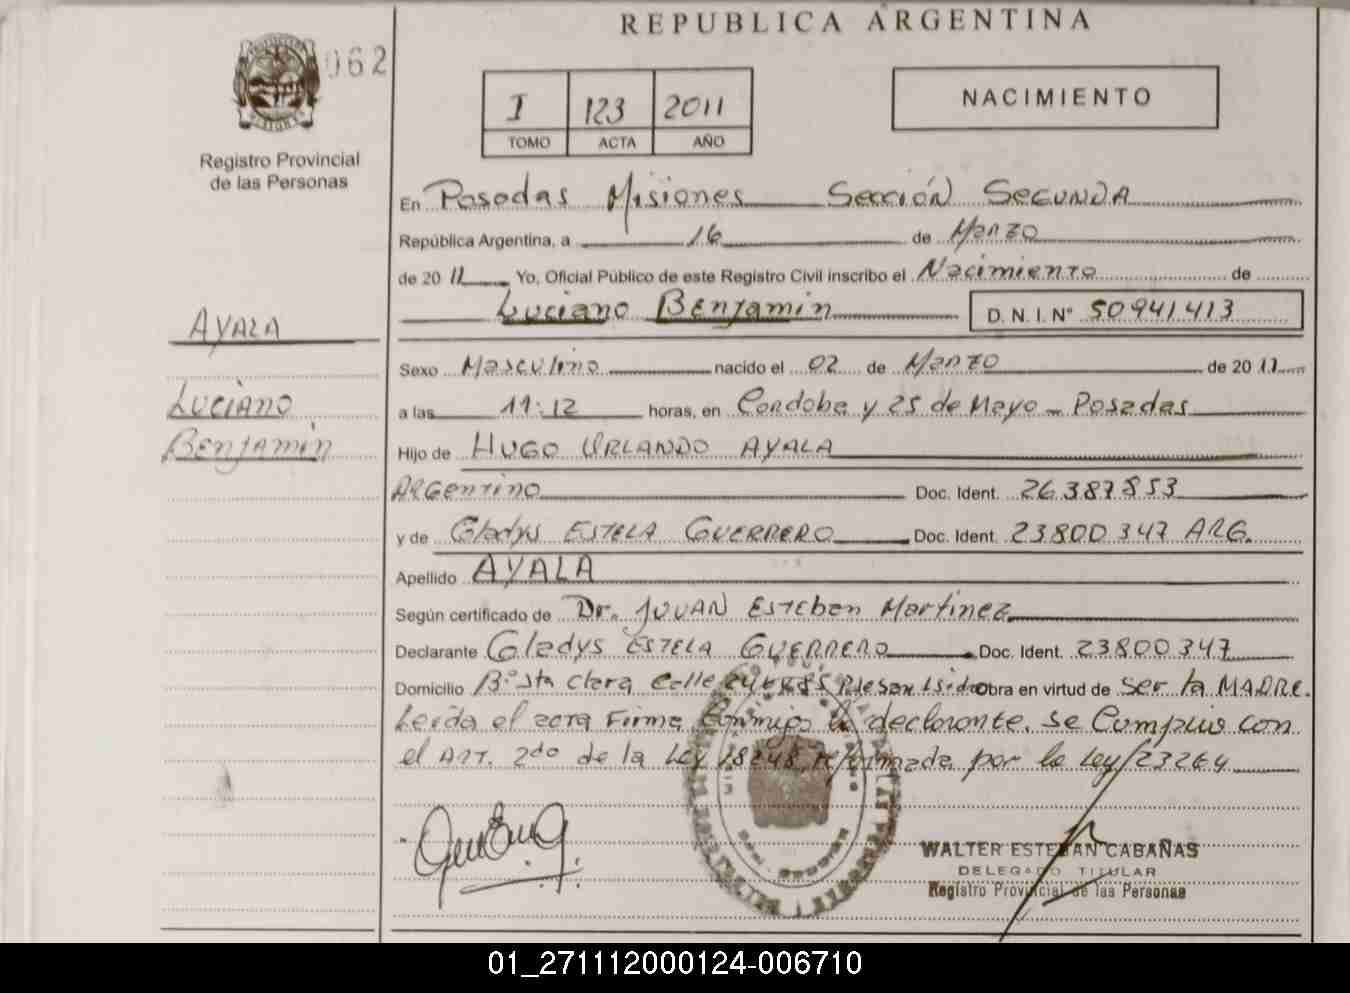 REPUBLICA ARGENTINA
062
I 123 2011
TOMO ACTA AÑO
NACIMIENTO
Registro Provincial
de las Personas
En Posadas Misiones Sección Segunda
República Argentina, a 16 de Marzo
de 2011 Yo, Oficial Público de este Registro Civil inscribo el Nacimiento de
Luciano Benjamín D. N. I. N° 50941413
AYALA
Luciano
Benjamín
Sexo Masculino nacido el 02 de Marzo de 2011
a las 11:12 horas, en Cordoba y 25 de Mayo - Posadas
Hijo de HUGO ORLANDO AYALA
Argentino Doc. Ident. 26.387853
y de Gladys ESTELA GUERRERO Doc. Ident. 23800347 ARG.
Apellido AYALA
Según certificado de Dr. JUUAN Esteban Martinez
Declarante Gladys ESTELA GUERRERO Doc. Ident. 23800347
Domicilio B° Sta Clara Calle Obra en virtud de ser la MADRE.
Leída el acta Firma conmigo la declarante. Se Cumplio con
el ART. 2do de la Ley 18248, reformada por la Ley/23264
WALTER ESTEBAN CABAÑAS
DELEGADO TITULAR
Registro Provincial de las Personas
01_271112000124-006710